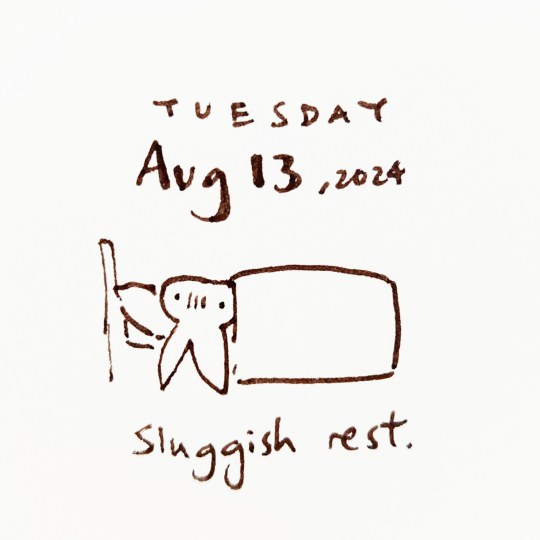 TUESDAY
Aug 13, 2024
Sluggish rest.